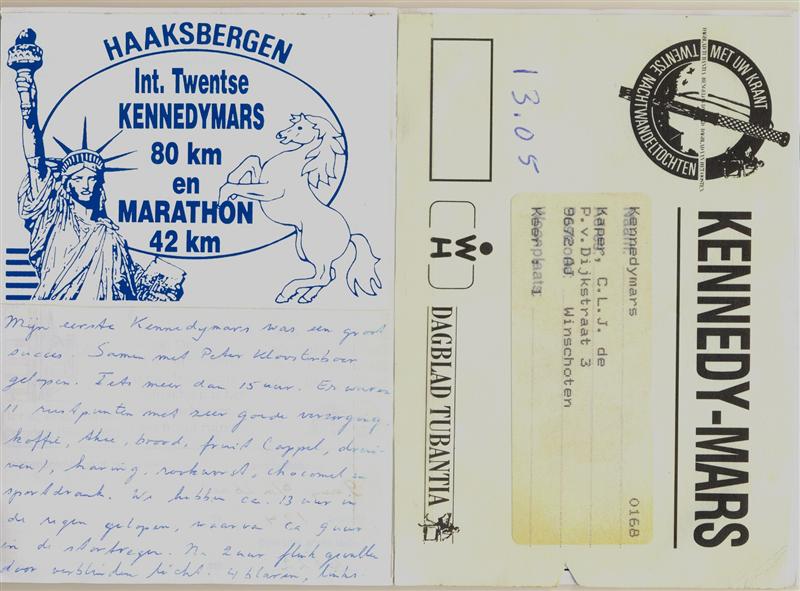 HAAKSBERGEN
Int. Twentse
KENNEDYMARS
80 km
en
MARATHON
42 km
Mijn eerste Kennedymars was een groot
succes. Samen met Peter Kloosterboer
gelopen. Iets meer dan 15 uur. Er waren
11 rustpunten met zeer goede verzorging
koffie, thee, brood, fruit (appel, drui-
ven), haring, rookworst, chocomel en
sportdrank. We hebben ca. 13 uur in
de regen gelopen, waarvan ca 9 uur
in de stortregen. Na 2 uur flink gevallen
door verblindend licht. 4 blaren, links
MET UW KRANT
TWENTSE NACHTWANDELTOCHTEN
KENNEDY-MARS
Kennedymars 0168
Kaper, C.L.J. de
P.v.Dijkstraat 3
9672 AJ Winschoten
Keer : 1
13.05
WH
DAGBLAD TUBANTIA